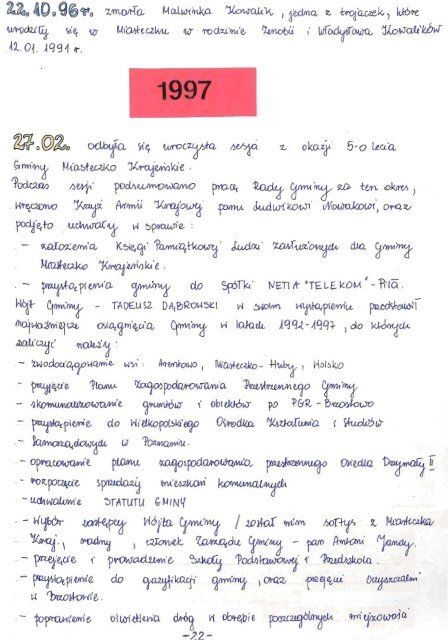 22.10.96r. zmarła Malwinka Kowalik, jedna z trojaczek, które
urodziły się w Miasteczku w rodzinie Zenobii i Władysława Kowalików
12.01.1991 r.
1997
27.02. odbyła się uroczysta sesja z okazji 5-o lecia
Gminy Miasteczko Krajeńskie.
Podczas sesji podsumowano pracę Rady Gminy za ten okres,
wręczono Krzyż Armii Krajowej panu Ludwikowi Nowakowi, oraz
podjęto uchwały w sprawie:
- założenia Księgi Pamiątkowej Ludzi Zasłużonych dla Gminy
Miasteczko Krajeńskie.
- przystąpienia gminy do Spółki NETIA "TELEKOM" - Piła.
Wójt Gminy - TADEUSZ DĄBROWSKI w swoim wystąpieniu przedstawił
najważniejsze osiągnięcia Gminy w latach 1992-1997, do których
zaliczyć należy:
- zwodociągowanie wsi: Arentowo, Miasteczko-Huby, Wolsko
- przyjęcie Planu Zagospodarowania Przestrzennego Gminy
- skomunalizowanie gruntów i obiektów po PGR - Brzostowo
- przystąpienie do Wielkopolskiego Ośrodka Kształcenia i Studiów
- Samorządowych w Poznaniu.
- opracowanie planu zagospodarowania przestrzennego Osiedla Drzymały II
- rozpoczęcie sprzedaży mieszkań komunalnych
- uchwalenie STATUTU GMINY
- Wybór zastępcy Wójta Gminy / został nim sołtys z Miasteczka
Kraj., radny, członek Zarządu Gminy - pan Antoni Jamry.
- przejęcie i prowadzenie Szkoły Podstawowej i Przedszkola.
- przystąpienie do gazyfikacji gminy, oraz przejęci oczyszczalni
w Brzostowie.
- poprawienie oświetlenia dróg w obrębie poszczególnych miejscowości
-22-